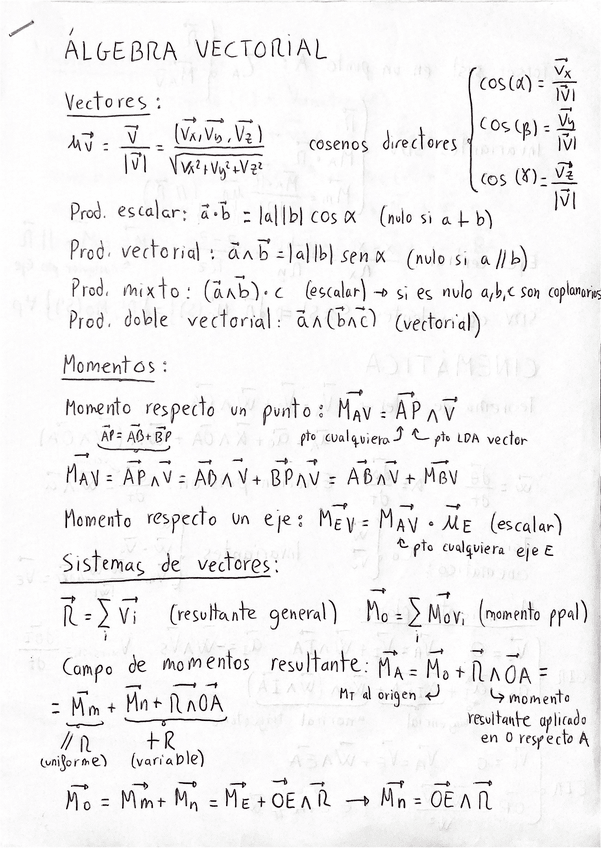 ÁLGEBRA VECTORIAL
Vectores:
μv⃗ = v⃗/|v⃗| = (Vx⃗, Vy⃗, Vz⃗)/√(Vx²+Vy²+Vz²) cosenos directores { cos(α) = Vx⃗/|V|
cos(β) = Vy⃗/|V|
cos(γ) = Vz⃗/|V|
Prod. escalar: a⃗·b⃗ = |a||b| cos α (nulo si a ⊥ b)
Prod. vectorial: a⃗∧b⃗ = |a||b| sen α (nulo si a // b)
Prod. mixto: (a⃗∧b⃗)·c (escalar) → si es nulo a,b,c son coplanarios
Prod. doble vectorial: a⃗∧(b⃗∧c⃗) (vectorial)
Momentos:
Momento respecto un punto: M⃗AV = A⃗P ∧ V⃗
A⃗P = A⃗B + B⃗P pto cualquiera ⤴ ↖ pto LDA vector
M⃗AV = A⃗P∧V⃗ = A⃗D∧V⃗ + B⃗P∧V⃗ = A⃗B∧V⃗ + M⃗BV
Momento respecto un eje: M⃗EV = M⃗AV · μ⃗E (escalar)
↖ pto cualquiera eje E
Sistemas de vectores:
R⃗ = ∑i V⃗i (resultante general) M⃗o = ∑i M⃗ovi (momento ppal)
Campo de momentos resultante: M⃗A = M⃗o + R⃗∧O⃗A =
Mr al origen ↲ ↳ momento
resultante aplicado
en O respecto A
= M⃗m + M⃗n + R⃗∧O⃗A
// R ⊥ R
(uniforme) (variable)
M⃗o = M⃗m + M⃗n = M⃗E + O⃗E∧R⃗ → M⃗n = O⃗E∧R⃗